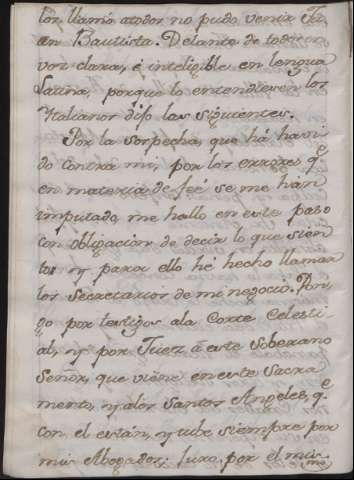 los llamó atodos no pudo venir Ju-
an Bautista. Delante de todos en
voz clara, é inteligible en lengua
Latina, porque lo entendiesen los
Italianos dijo las siguientes.
Por la sospecha, que há havi-
do contra mi, por los errores qᵉ
en materia de feé se me han
imputado, me hallo en este paso
con obligacion de decir lo que sien-
to: y para ello hé hecho llamar
los Secretarios de mi negocio. Pon-
go por testigos ala Corte Celesti-
al, y por Juez á este Soberano
Señor, que viene en este Sacra
mento, y alos Santos Angeles, qᵉ
con el están, y tube siempre por
mis Abogados; juro por el mis-
mo